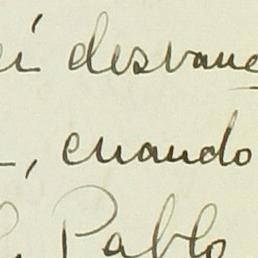 desvane
, cuando
Pablo